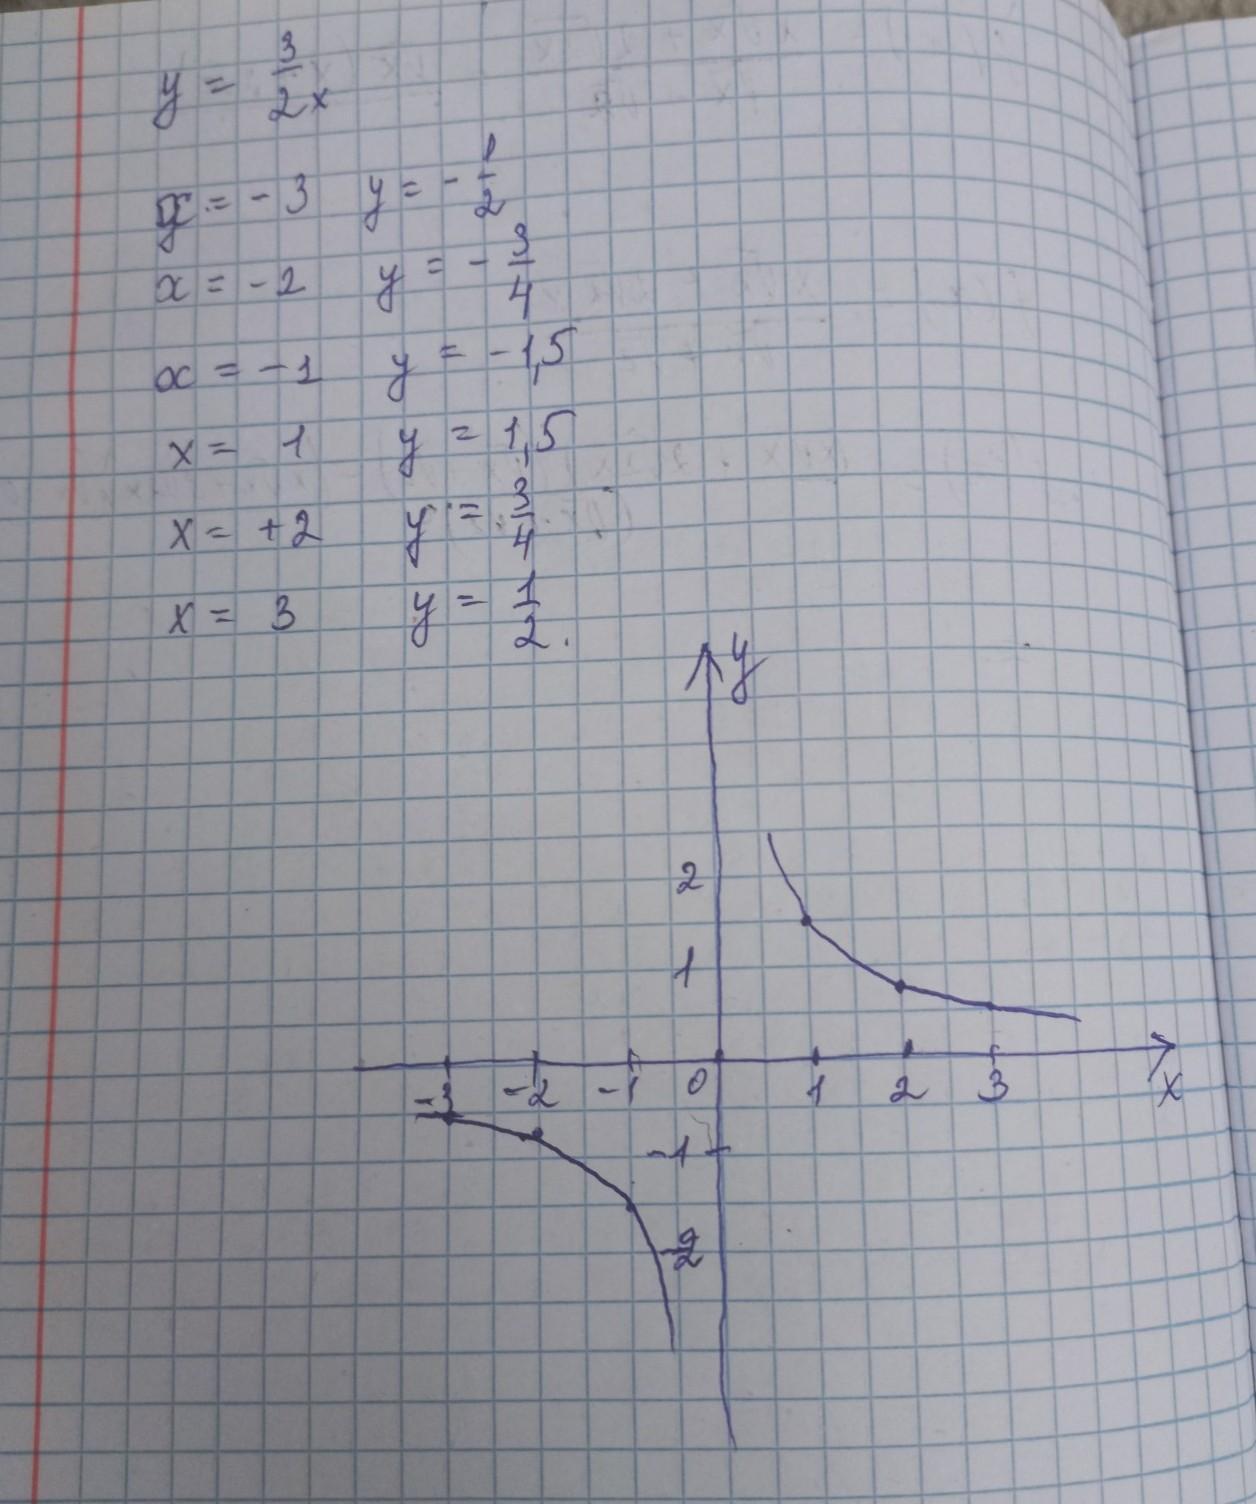 y = 3/2x
x = -3 y = -1/2
x = -2 y = -3/4
x = -1 y = -1,5
x = 1 y = 1,5
x = +2 y = 3/4
x = 3 y = 1/2.
y
2
1
-3 -2 -1 0 1 2 3 x
-1
-2